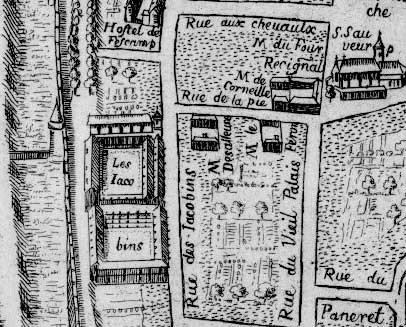 che
Rue aux chevaulx
Hostel de
Fescamp
M. du Four
Recignal
S. Sau
veur
P
M. de
Corneille
Rue de la pie
Les
Iaco
bins
Rue des Iacobins
M
Desalleurs
M. le
Rue du Vieil Palais
Rue du
Paneret